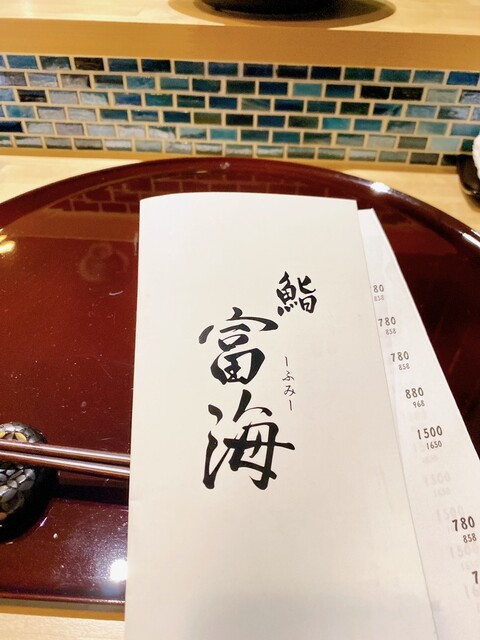 鮨
富海
ーふみー
80
858
780
858
780
858
880
968
1500
1650
780
858